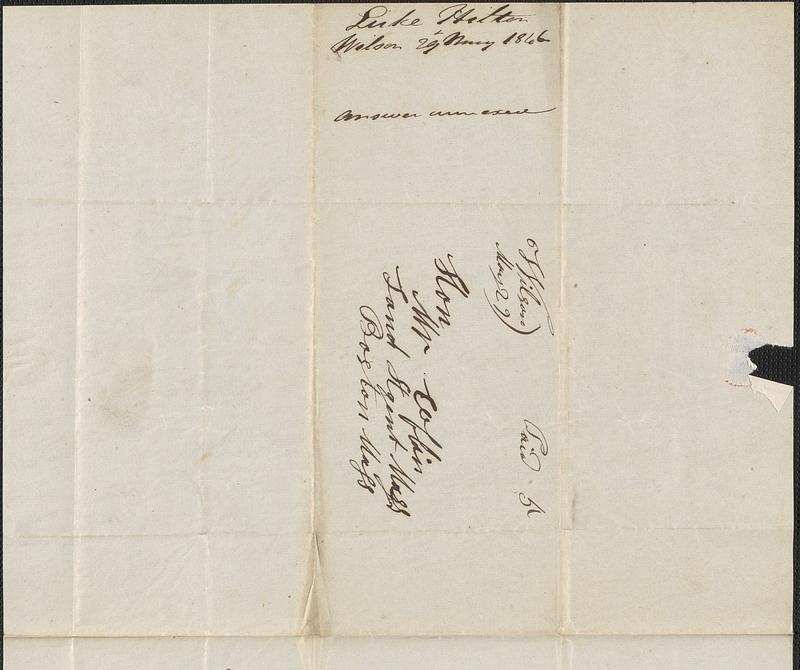 Luke Hilton
Wilson 29 May 1846
answer annexed
Wilson)
May 29)
Paid 5
Hon
Mr Coffin
Land Agent Mass
Boston Mass